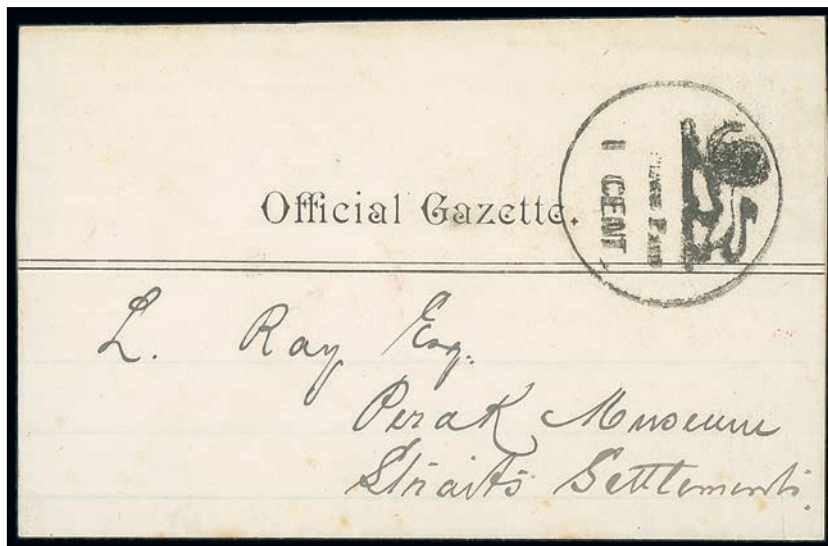 Official Gazette.
1 CENT.
L. Ray Esq.
Perak Museum
Straits Settlements.